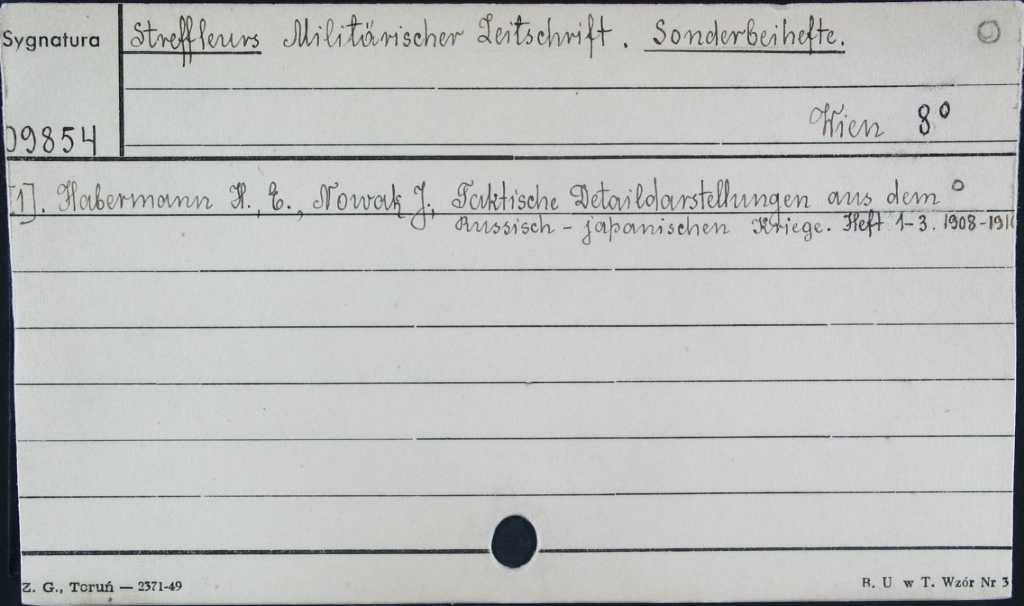 Sygnatura Streffleurs Militärischer Zeitschrift. Sonderbeihefte.
Wien 8°
09854
[1]. Habermann H. E., Nowak J., Taktische Detaildarstellungen aus dem
Russisch - japanischen Kriege. Heft 1-3. 1908-1910
Z. G., Toruń — 2371-49
B. U w T. Wzór Nr 3